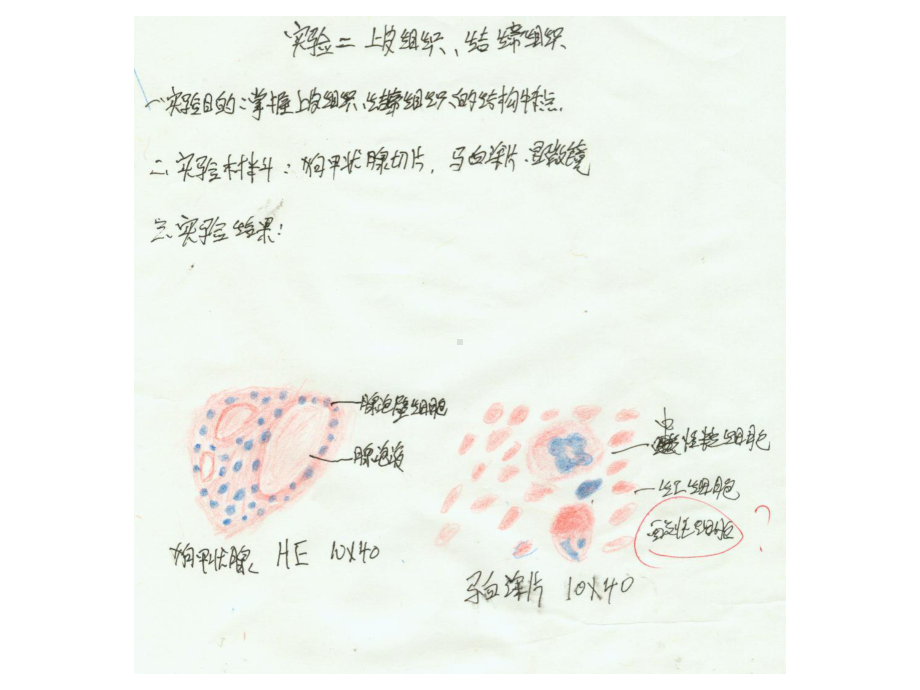 实验二 上皮组织、结缔组织
一、实验目的:掌握上皮组织、结缔组织的结构特点.
二、实验材料:狗甲状腺切片,马血涂片.显微镜
三、实验结果:
腺泡壁细胞
腺泡液
狗甲状腺 HE 10×40
中性粒细胞
红细胞
酸性细胞
?
马血涂片 10×40